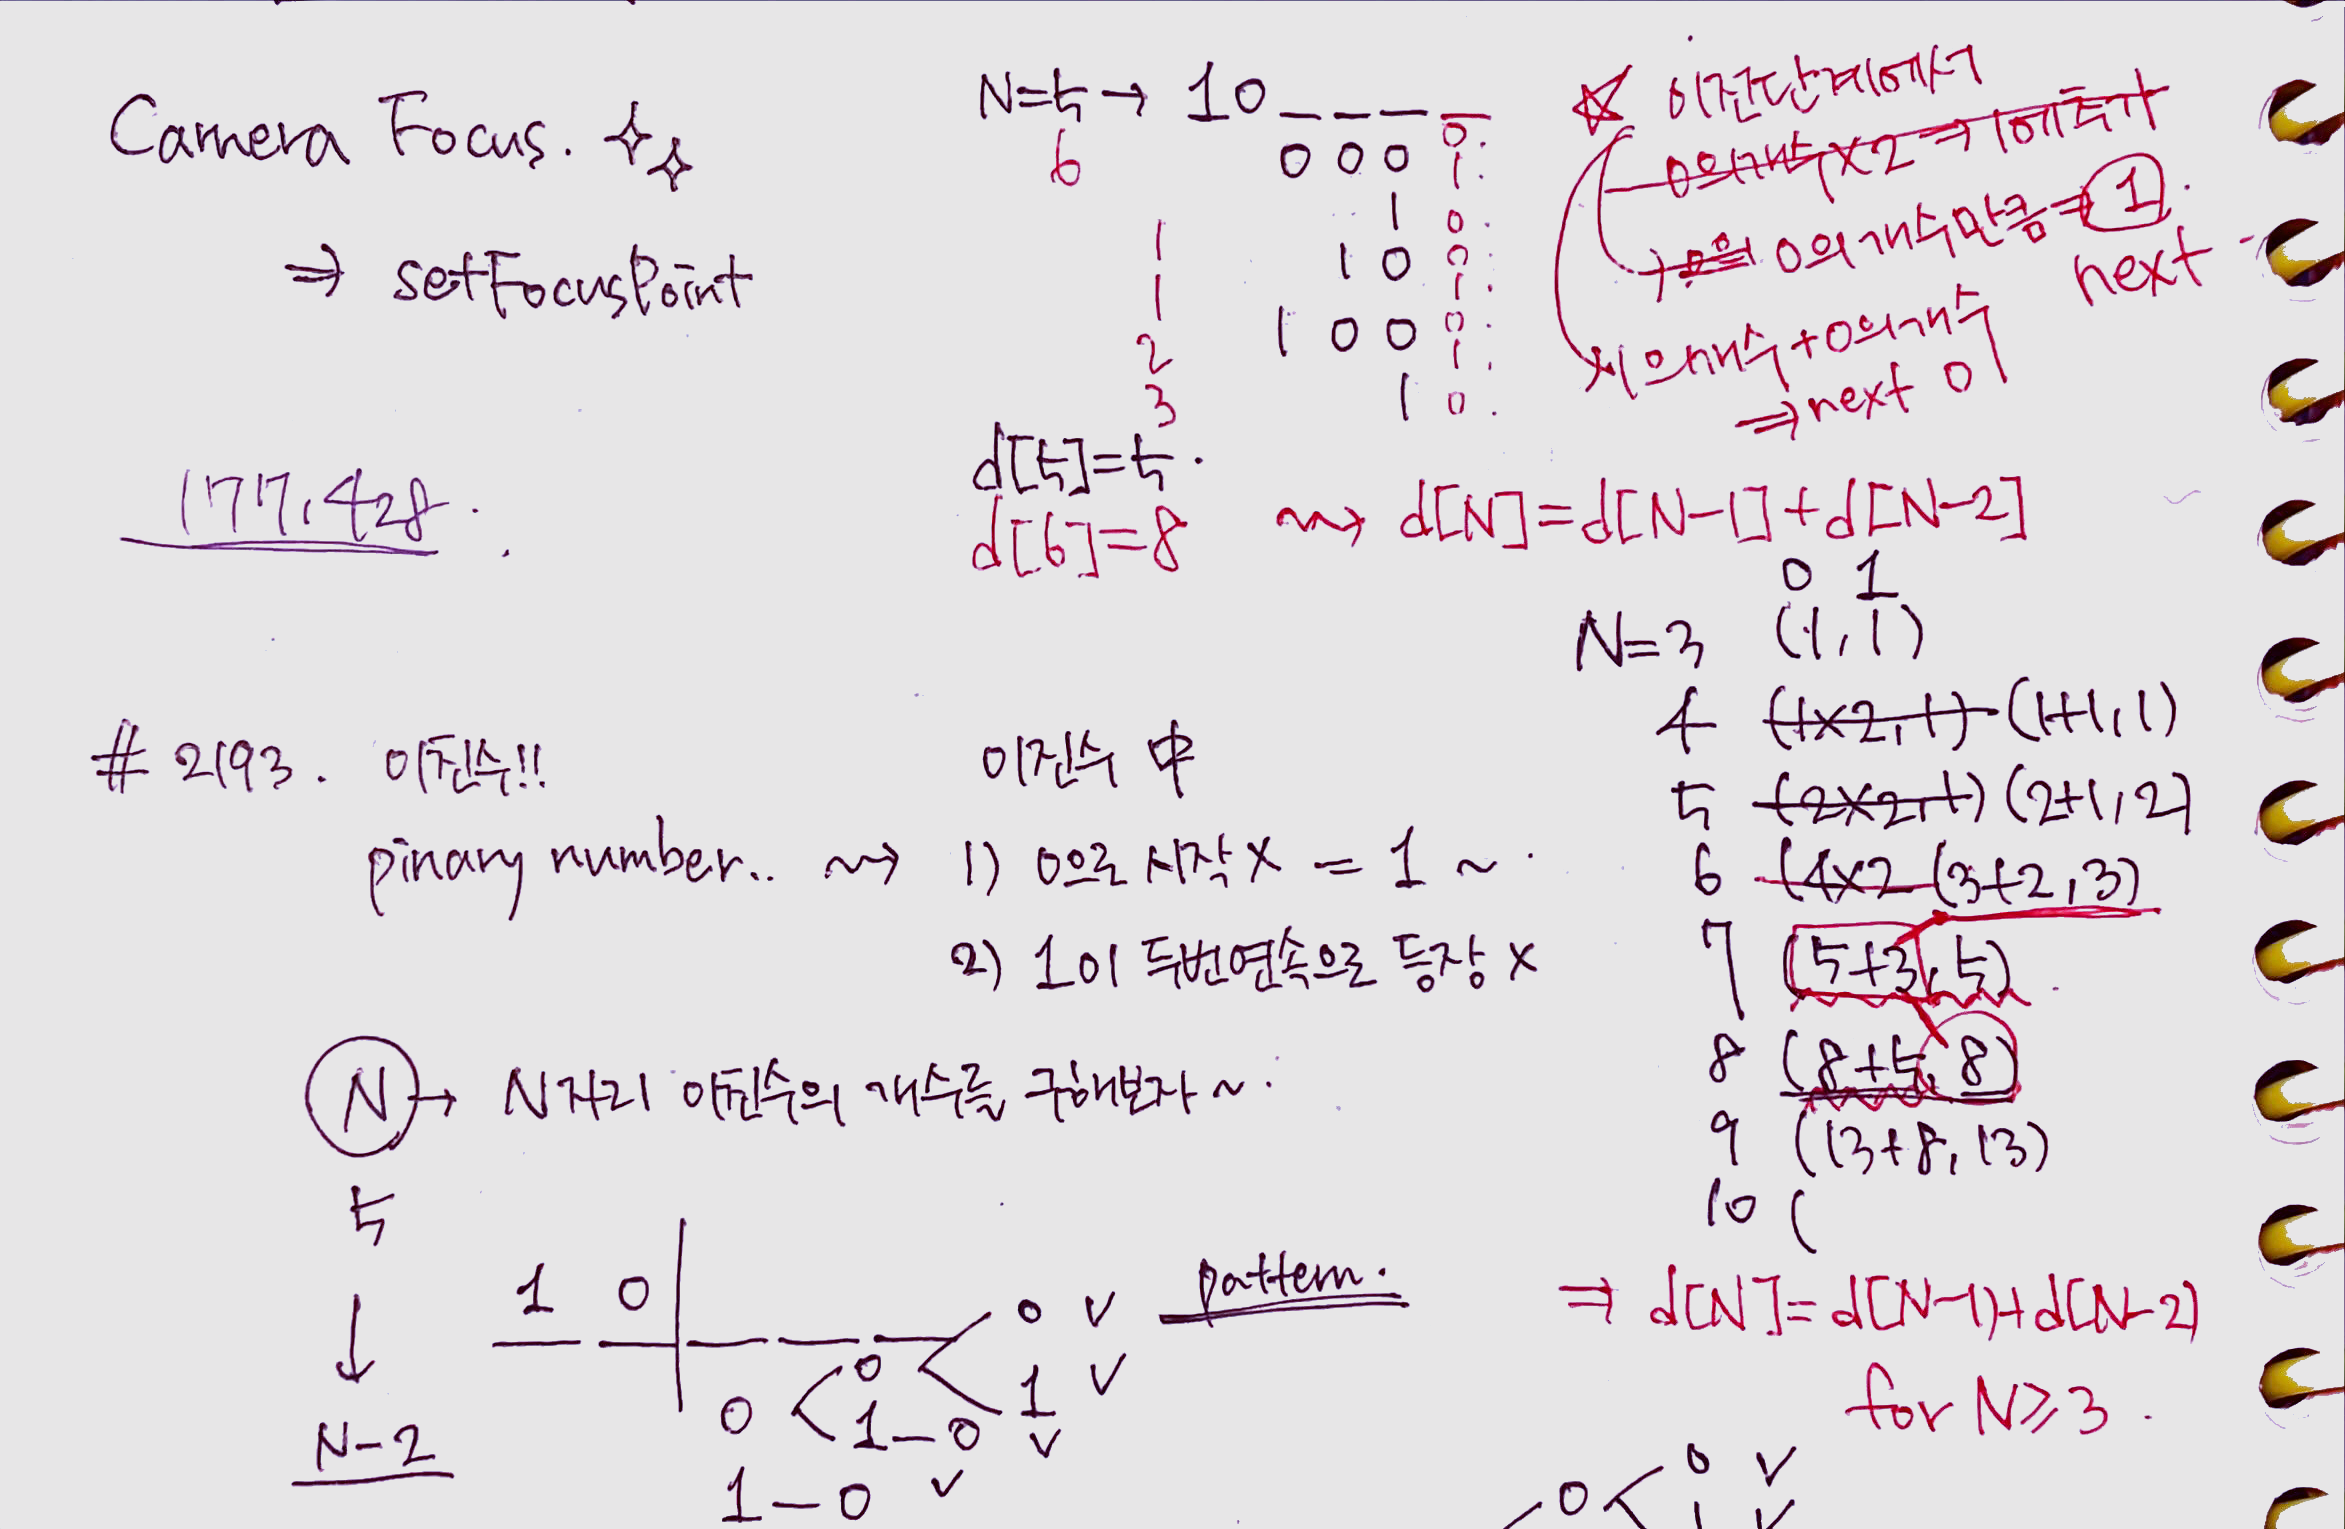 Camera Focus.
⇒ setFocusPoint
177,428.
N=5 → 10 _ _ _ _
6
0 0 0 0
1
1 0
1
1 0 0
1
1
2
1 0 0 0
1
3
1 0
d[5]=5.
d[6]=8 ⇝ d[N]=d[N-1]+d[N-2]
☆ 이전단계에서
0의개수×2 ⇒ 1에추가
0의 0의 개수만큼 ⇒ 1
next
1의개수+0의개수
⇒ next 0
0 1
N=3 (1,1)
4 (1×2,1) (1+1,1)
5 (2×2,1) (2+1,2)
6 (4×2 (3+2,3)
7 (5+3,5)
8 (8+5,8)
9 (13+8,13)
10 (
⇒ d[N]=d[N-1]+d[N-2]
for N≥3.
# 2193. 이친수!!
pinary number.. ⇝
이진수 中
1) 0으로 시작 X = 1 ~
2) 1이 두번연속으로 등장 X
N → N자리 이친수의 개수를 구해보자~.
5
↓
N-2
1 0
pattern.
0 ∨
0
1 ∨
0 1-0 ∨
1-0 ∨
0 0 ∨